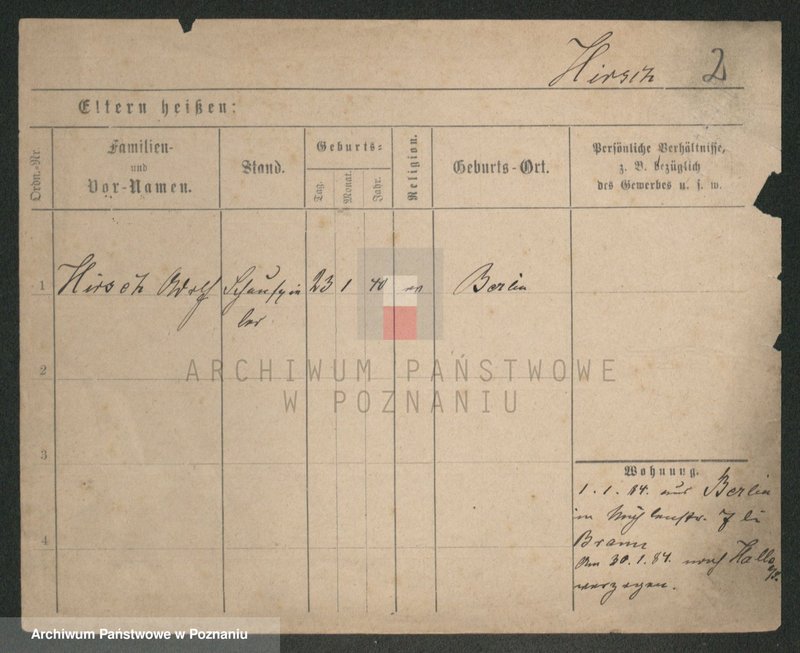 Hirsch 2
Eltern heißen:
Ordn.-Nr.
Familien-
und
Vor-Namen.
Stand.
Geburts-
Tag.
Monat.
Jahr.
Religion.
Geburts-Ort.
Persönliche Verhältnisse,
z. B. bezüglich
des Gewerbes u. s. w.
1 Hirsch Adolf Schauspie 23 1 40 ev Berlin
ler
2
ARCHIWUM PAŃSTWOWE
W POZNANIU
3
4
Wohnung.
1. 1. 84. aus Berlin
in Mühlenstr. 7 bei
Braun
Am 30. 1. 84. nach Halle a/S.
verzogen.
Archiwum Państwowe w Poznaniu